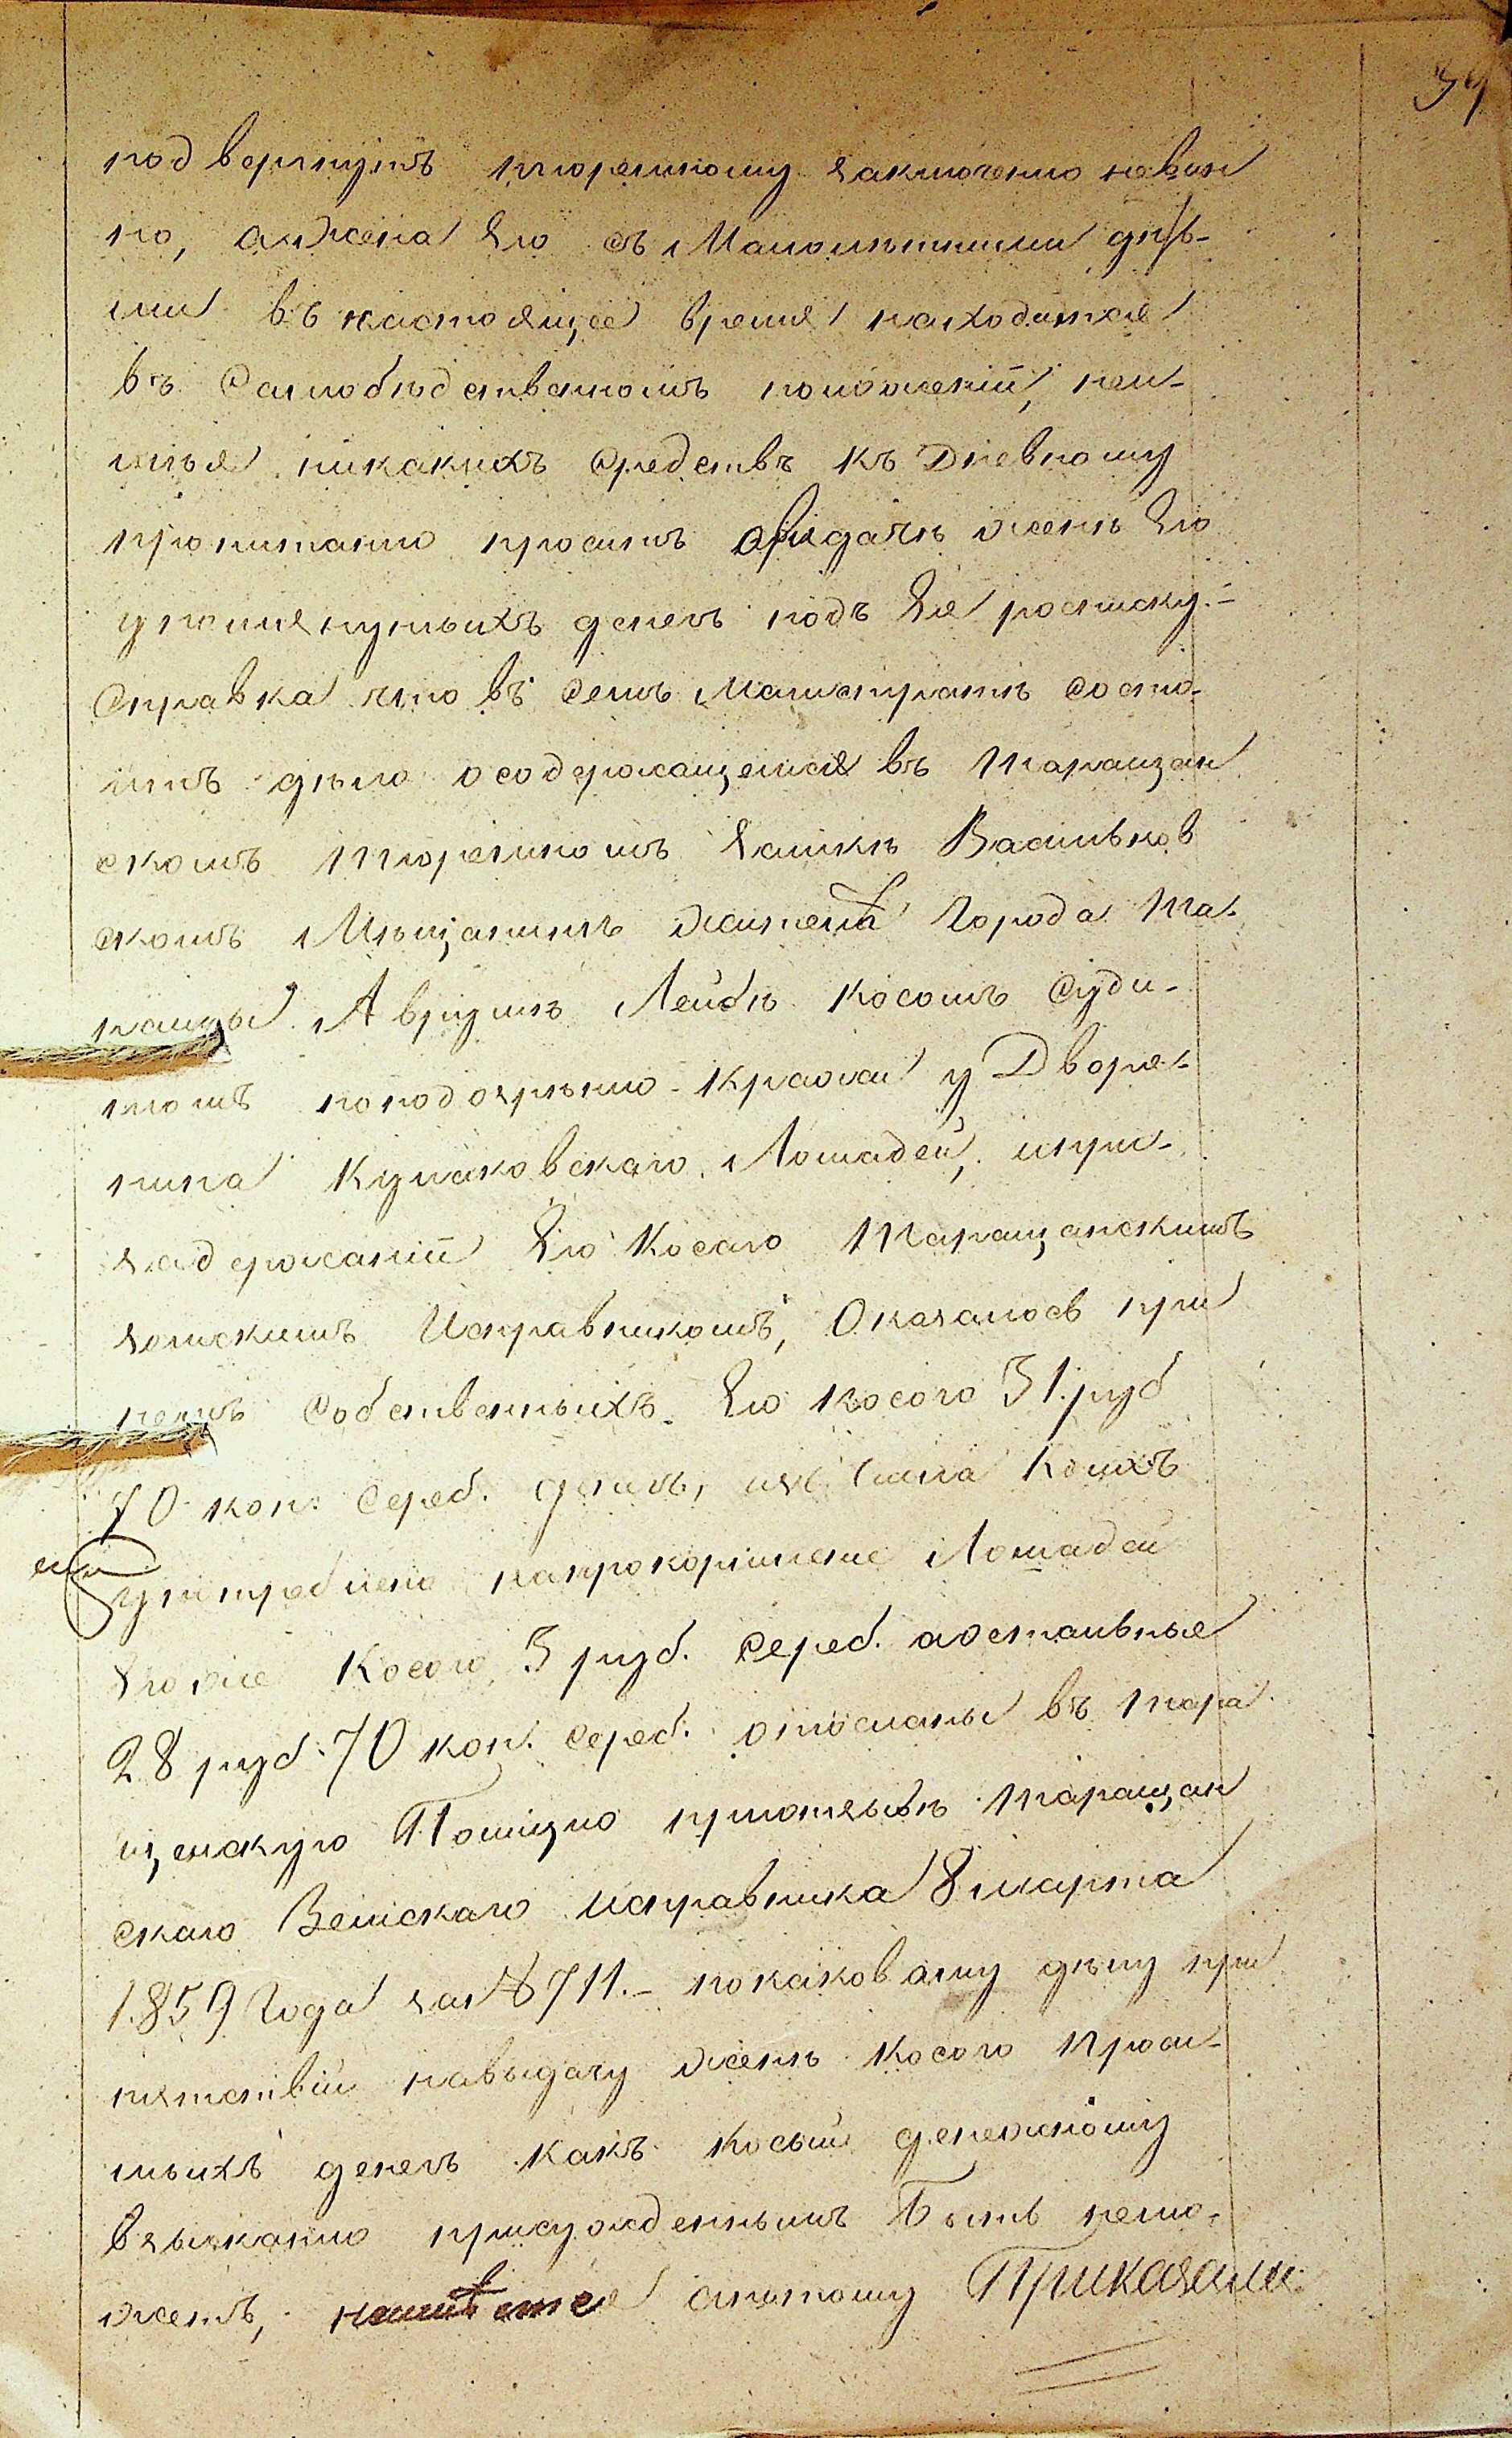 39
подвергнутъ тюремному заключенію невин
но, а жена Его съ Малолѣтними дѣть-
ми въ настоящее время находится
въ Самобѣдственномъ положеніи, неи-
мѣя никакихъ средствъ къ Дневному
пропитанію проситъ овыдачѣ женѣ Его
упомянутыхъ денегъ подъ Ея росписку.-
Справка что въ семъ Магистратѣ состо-
итъ дѣло осодержащемся въ Таращан
скомъ Тюремномъ Замкѣ Васильков
скомъ Мѣщанинѣ жителѣ Города Та-
ращы Аврумѣ Лейбѣ Косомъ Суди-
момъ поподозрѣнію кражи у Дворя-
нина Кулаковскаго Лошадей, ипри-
задержаніи Его Косаго Таращанскимъ
земскимъ Исправникомъ, Оказалось при
немъ Собственныхъ Его косого 31 руб
70 коп. сереб. денегъ, изъ числа коихъ
употреблено напрокормленіе Лошадей
Егоже Косого 3 руб. сереб. аостальные
28 руб. 70 коп. сереб. отосланы въ Тара
щанскую Полицію приотзывѣ Таращан
скаго Земскаго исправника 8 марта
1859 Года за № 711.- покаковому дѣлу пре
пятствій навыдачу женѣ Косого Проси-
мыхъ денегъ какъ Косый денежному
взысканію присужденнымъ Быть немо-
жетъ, неимѣется апотому Приказали